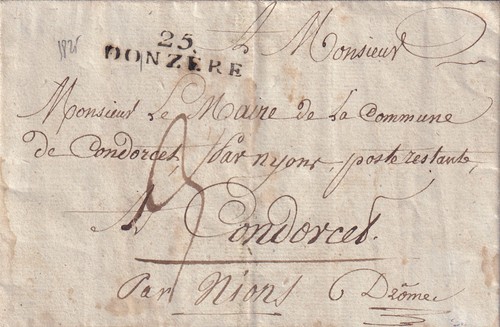 1825
25.
DONZÈRE
A Monsieur
Monsieur Le Maire de la Commune
de Condorcet, par nyons, poste restante,
3
A Condorcet.
Par Nions Drôme